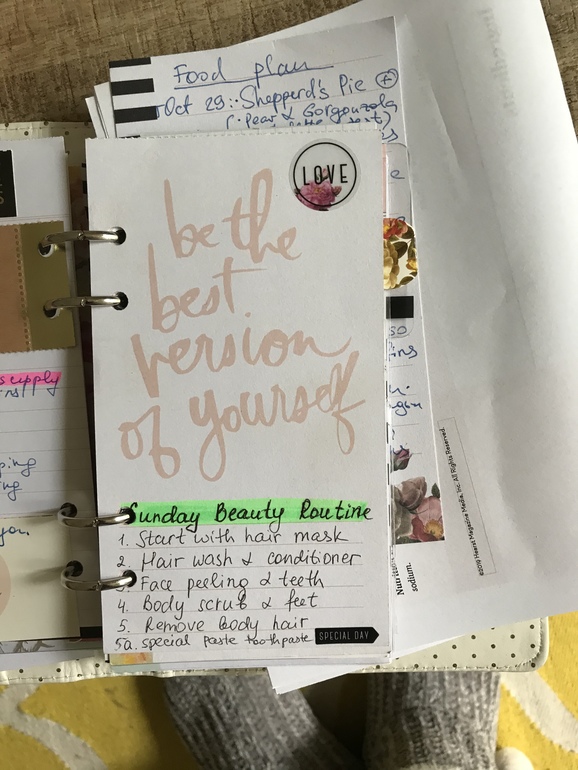 Food plan
Oct 29: Shepperd's Pie
Pear & Gorgonzola
LOVE
be the
best
version
of yourself
Sunday Beauty Routine
1. Start with hair mask
2. Hair wash & conditioner
3. Face peeling & teeth
4. Body scrub & feet
5. Remove body hair
5a. special paste toothpaste
SPECIAL DAY
supply
ping
you
so
©2019 Hearst Magazine Media, Inc. All Rights Reserved.
sodium.